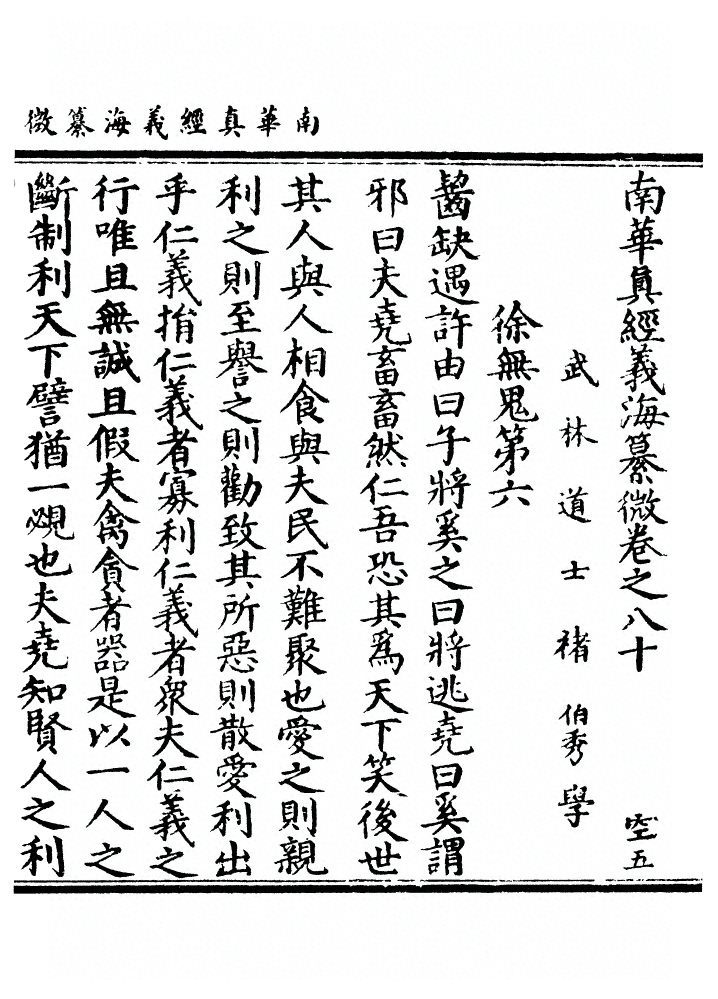 南華真經義海纂微
南華真經義海纂微卷之八十 空五
武林道士褚伯秀學
徐無鬼第六
齧缺遇許由曰子將奚之曰將逃堯曰奚謂
邪曰夫堯畜畜然仁吾恐其爲天下笑後世
其人與人相食與夫民不難聚也愛之則親
利之則至譽之則勸致其所惡則散愛利出
乎仁義捐仁義者寡利仁義者衆夫仁義之
行唯且無誠且假夫禽貪者器是以一人之
斷制利天下譬猶一覕也夫堯知賢人之利